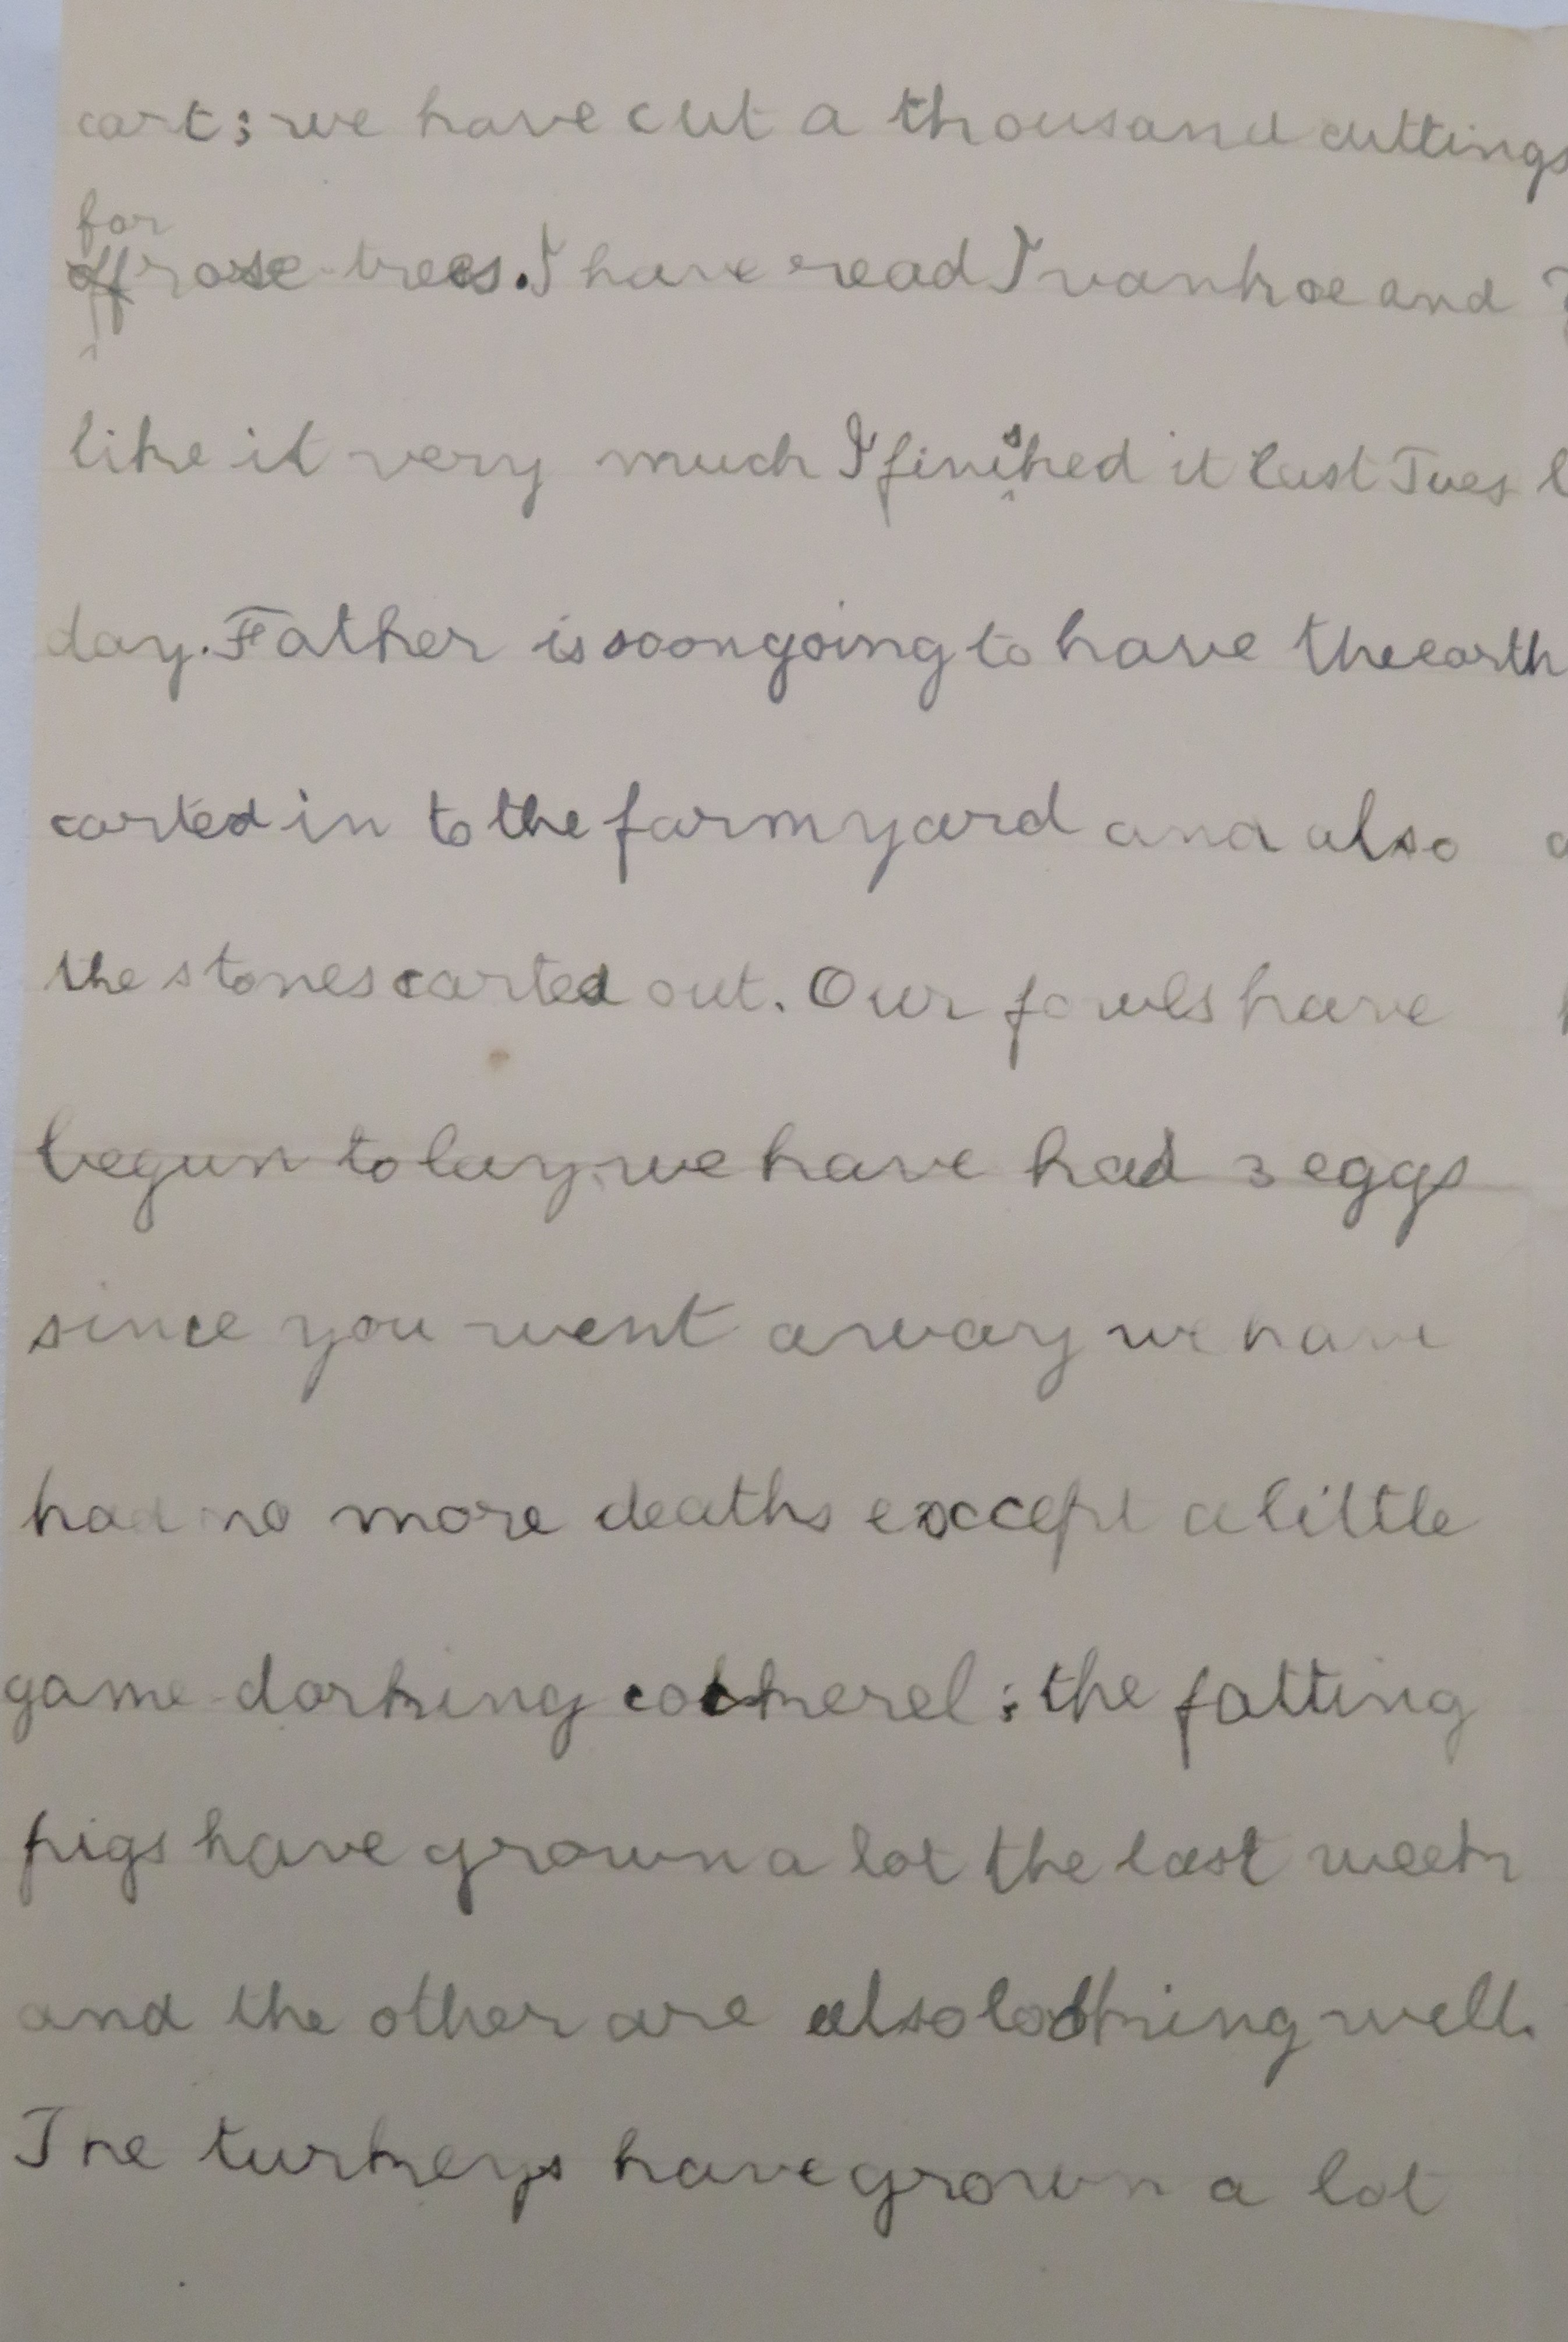 cart; we have cut a thousand cuttings
for
off rose-trees. I have read Ivanhoe and
like it very much I finished it last Tues
day. Father is soon going to have the earth
carted in to the farmyard and also
the stones carted out. Our fowls have
begun to lay; we have had 3 eggs
since you went away we have
had no more deaths except a little
game-dorking cockerel; the fatting
pigs have grown a lot the last week
and the other are also looking well.
The turkeys have grown a lot